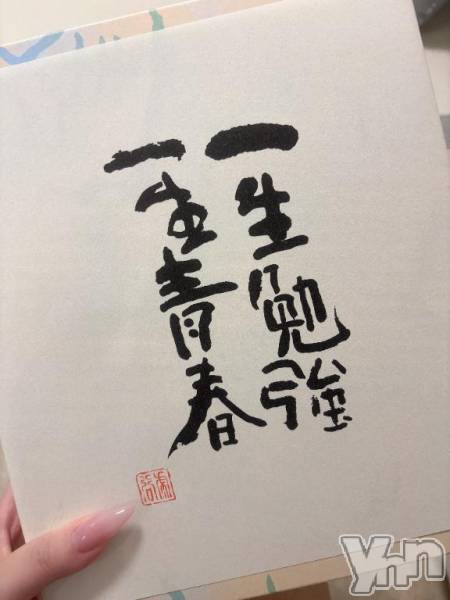 一生勉強
一生青春
Ynn